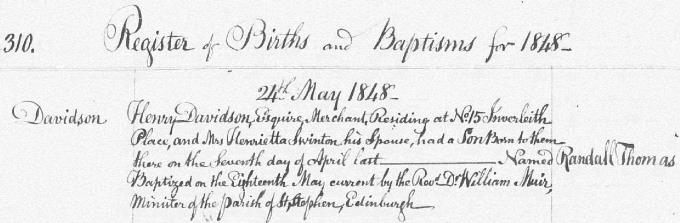 310. Register of Births and Baptisms for 1848
24th May 1848
Davidson Henry Davidson, Esquire, Merchant, Residing at No. 15 Inverleith
Place, and Mrs Henrietta Swinton, his Spouse, had a Son Born to them
there on the Seventh day of April last Named Randall Thomas
Baptized on the Eighteenth May current by the Revd. Dr. William Muir,
Minister of the Parish of St. Stephen, Edinburgh